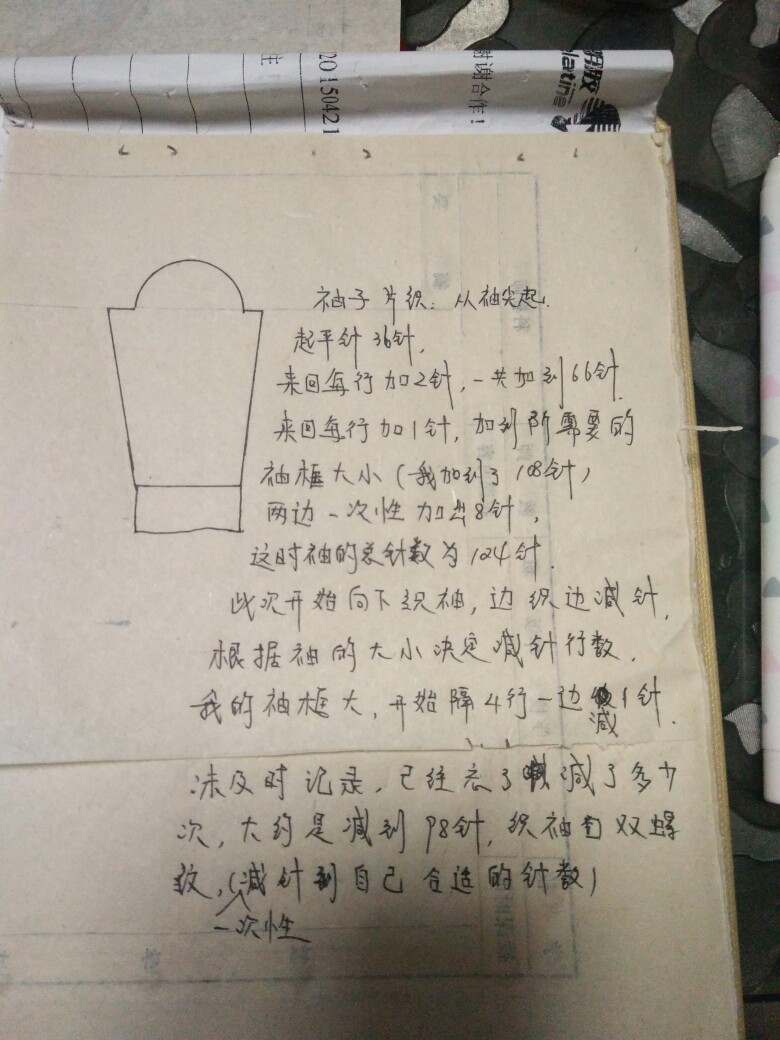 20150421
谢谢合作！
latine
袖子片织：从袖尖起.
起平针36针,
来回每行加2针,一共加到66针.
来回每行加1针,加到所需要的
袖框大小(我加到了108针)
两边一次性加出8针,
这时袖的总针数为124针.
此次开始向下织袖,边织边减针,
根据袖的大小决定减针行数,
我的袖框大,开始隔4行一边减1针.
未及时记录,已经忘了减了多少
次,大约是减到98针,织袖口双螺
纹,(一次性减针到自己合适的针数)